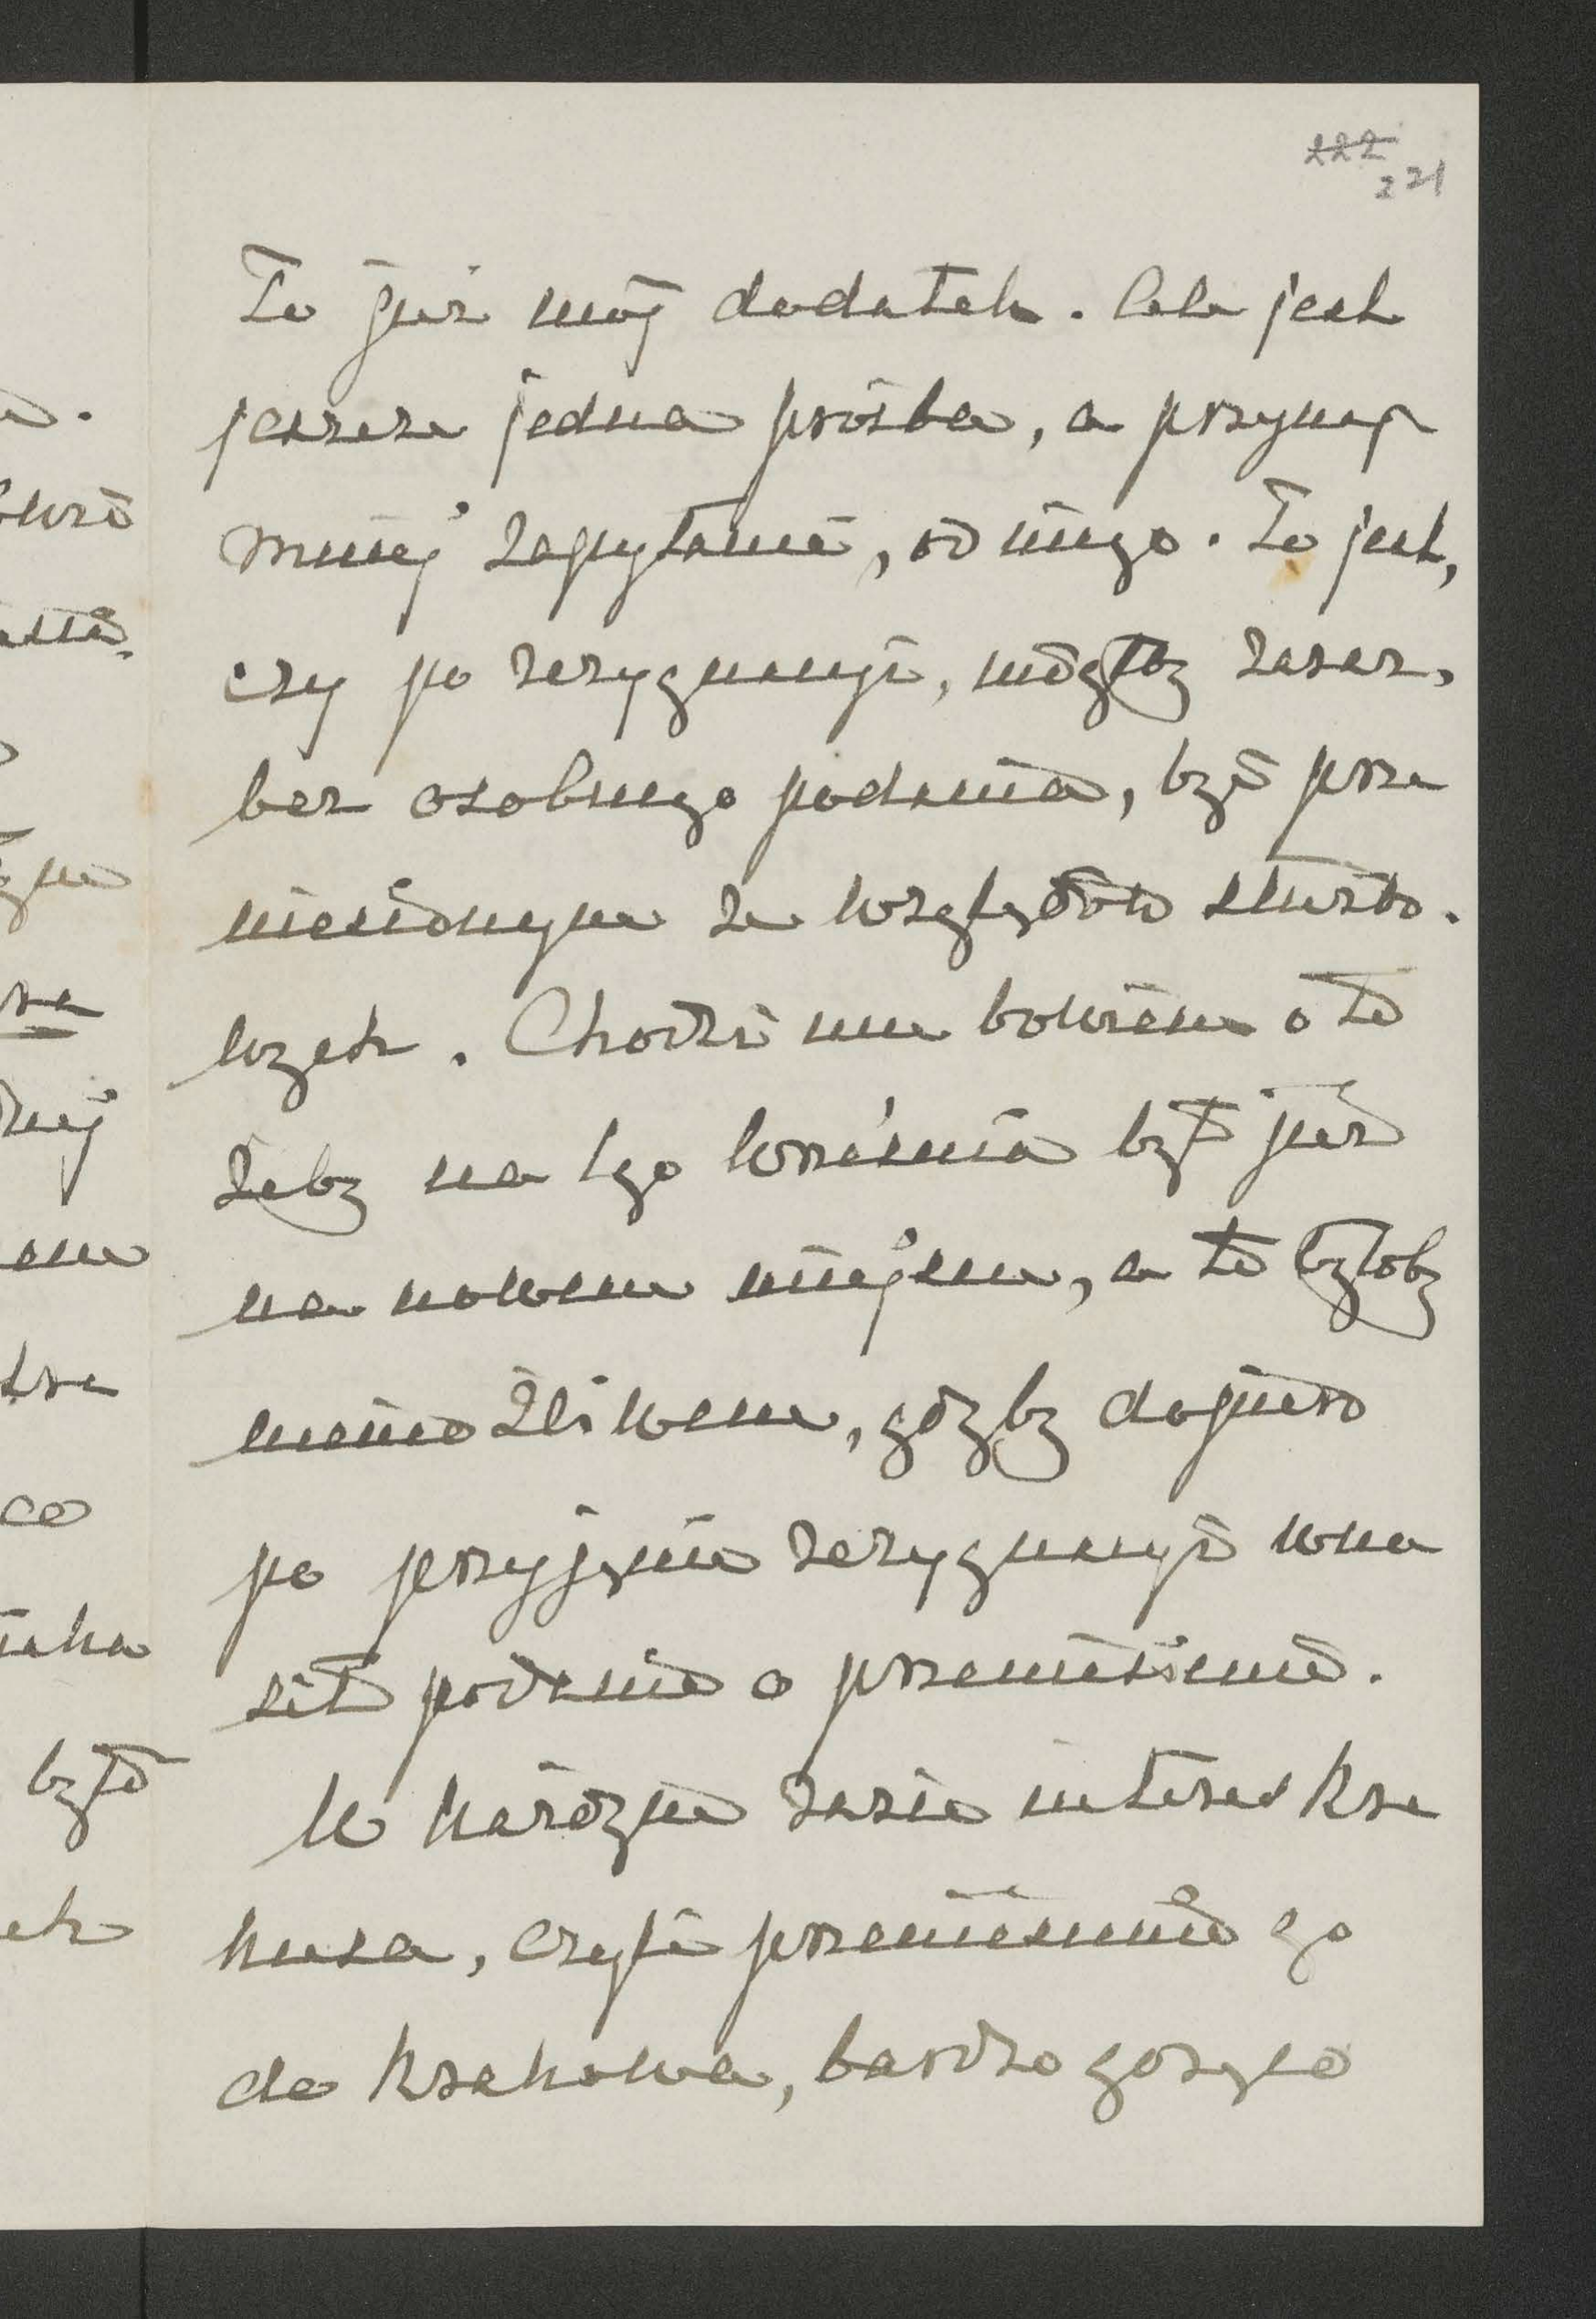 222
221
To już mój dodatek. Ale jest
jeszcze jedna prośba, a przynaj
mniej zapytanie, od niego. To jest,
czy po rezygnacyi, mógłby zaraz,
bez osobnego podania, być prze
niesionym ze względów służbo.
wych. Chodzi mu bowiem o to
żeby na 1go września był już
na nowem miejscu, a to byłoby
niemożliwem, gdyby dopiero
po przyjęciu rezygnacyi wno
sił podanie o przeniesienie.
W każdym razie interes Kra
kusa, czyli przeniesienie go
do Krakowa, bardzo gorąco